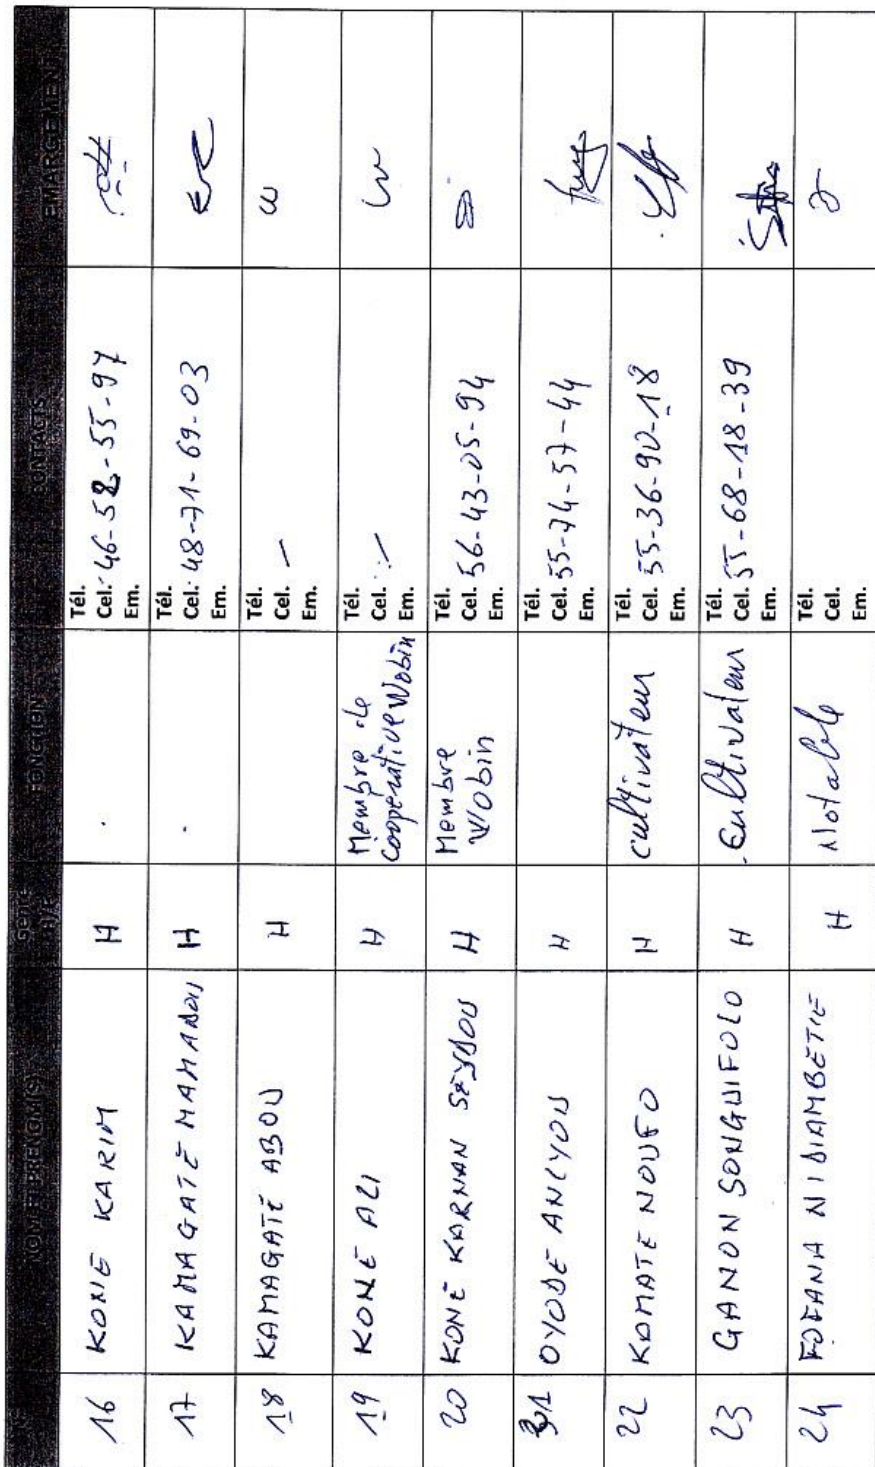 NOM ET PRENOM(S) Genre H/F FONCTION CONTACTS EMARGEMENT
16 KONE KARIM H Tél.
Cel. 46-58-55-97
Em.
17 KAMAGATÉ MAMADOU H Tél.
Cel. 48-71-69-03
Em.
18 KAMAGATÉ ABOU H Tél.
Cel. —
Em.
19 KONE ALI H Membre de Tél.
coopérative Wobin Cel. —
Em.
20 KONÉ KARNAN SEYDOU H Membre Tél.
Wobin Cel. 56-43-05-94
Em.
21 OYODE ANCYOU H Tél.
Cel. 55-74-57-44
Em.
22 KOMATE NOUFO H cultivateur Tél.
Cel. 55-36-90-18
Em.
23 GANON SONGUIFOLO H Cultivateur Tél.
Cel. 55-68-18-39
Em.
24 FOFANA NIDIAMBETIE H Notable Tél.
Cel.
Em.